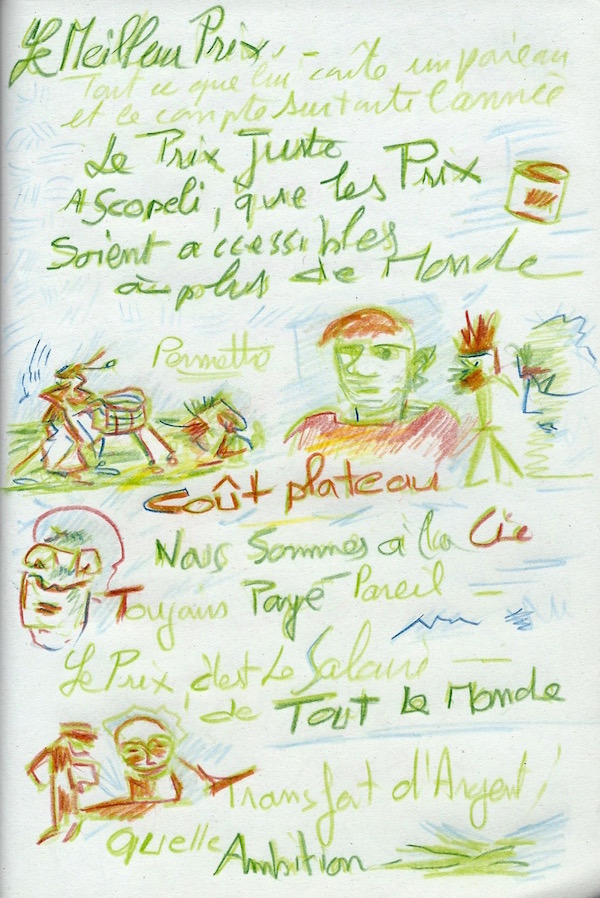 Le Meilleur Prix, -
Tout ce que lui coûte un
et le compte sur toute l'année
Le Prix Juste
A Scopeli, que les Prix
Soient accessibles
à plus de Monde
Permetto
Coût plateau
Nous Sommes à la Cie
Toujours Payé Pareil -
Le Prix, c'est Le Salaire -
de Tout Le Monde
Transfat d'Argent!
Quelle Ambition -